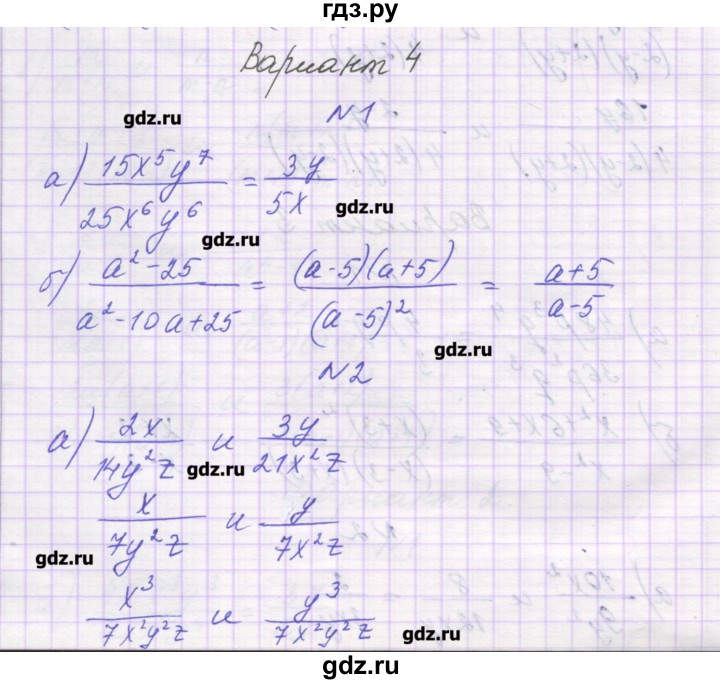 гдз.ру
Вариант 4
gdz.ru
N1
а) 15x⁵y⁷ / 25x⁶y⁶ = 3y / 5x
gdz.ru
gdz.ru
б) a² - 25 / a² - 10a + 25 = (a - 5)(a + 5) / (a - 5)² = a + 5 / a - 5
gdz.ru
N2
а) 2x / 14y²z и 3y / 21x²z
gdz.ru
x / 7y²z и y / 7x²z
gdz.ru
x³ / 7x²y²z и y³ / 7x²y²z
gdz.ru
gdz.ru